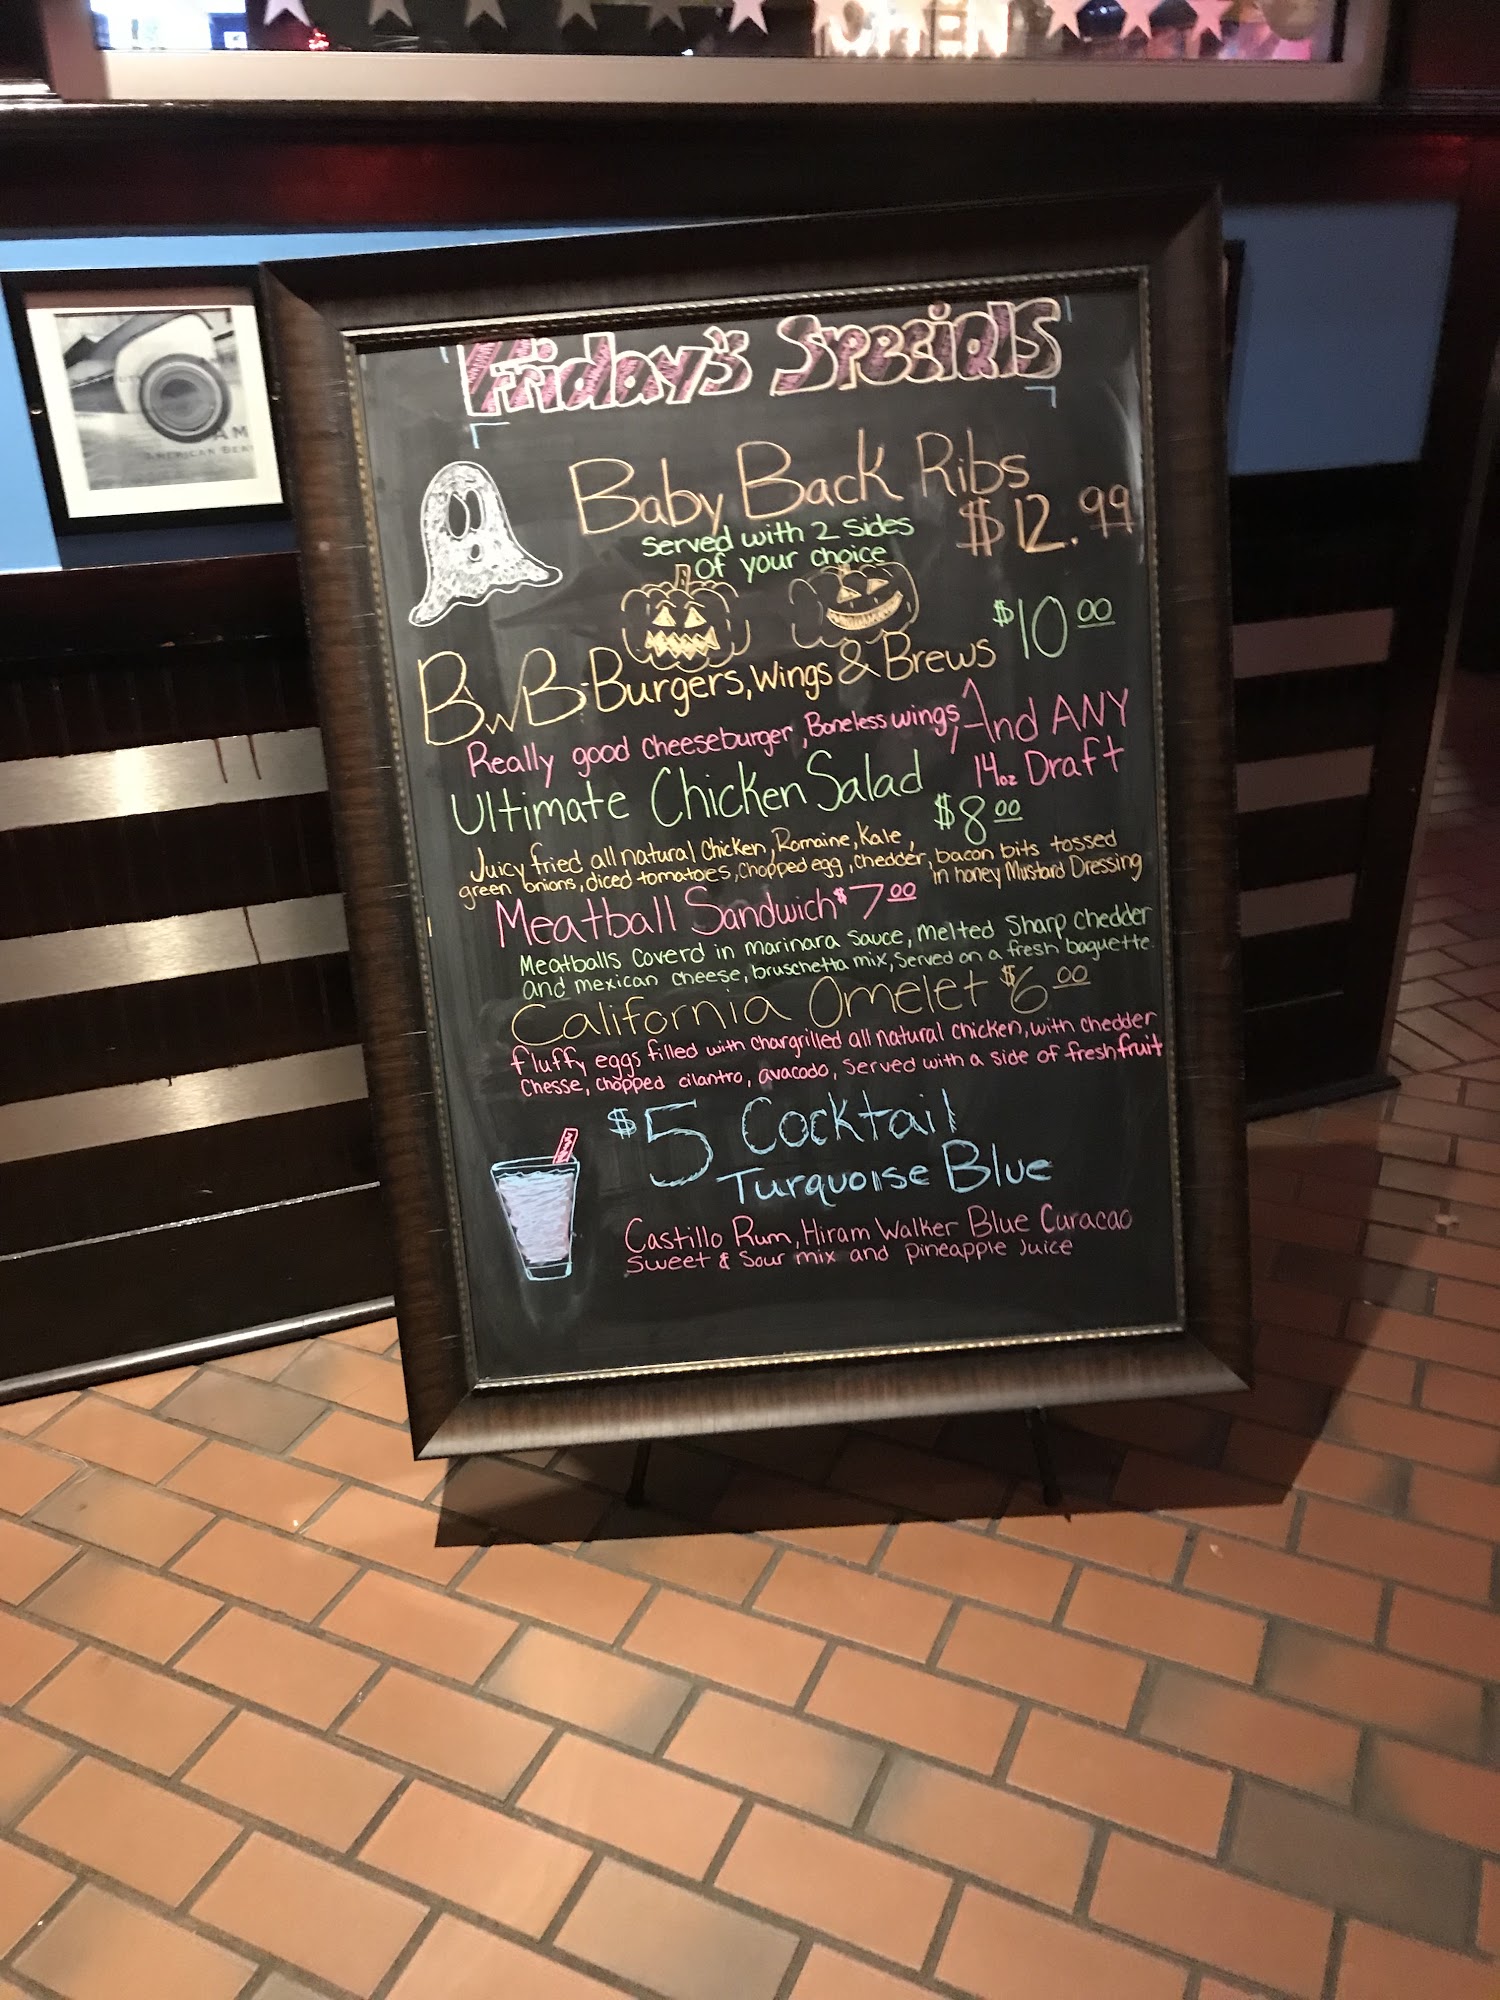 OPEN
AM
AMERICAN BEA
Friday's Specials
Baby Back Ribs
$12.99
Served with 2 sides
of your choice
BWB-Burgers, Wings & Brews $10.00
Really good cheeseburger, Boneless wings, And ANY
14oz Draft
Ultimate Chicken Salad
$8.00
Juicy fried all natural Chicken, Romaine, Kale,
green onions, diced tomatoes, chopped egg, chedder, bacon bits tossed
in honey Mustard Dressing
Meatball Sandwich $7.00
Meatballs coverd in marinara sauce, melted Sharp Chedder
and mexican cheese, bruschetta mix, served on a fresh baguette.
California Omelet $6.00
fluffy eggs filled with chargrilled all natural chicken, with chedder
Chesse, chopped cilantro, avacado, Served with a side of fresh fruit
$5 Cocktail
Turquoise Blue
Castillo Rum, Hiram Walker Blue Curacao
Sweet & Sour mix and pineapple Juice